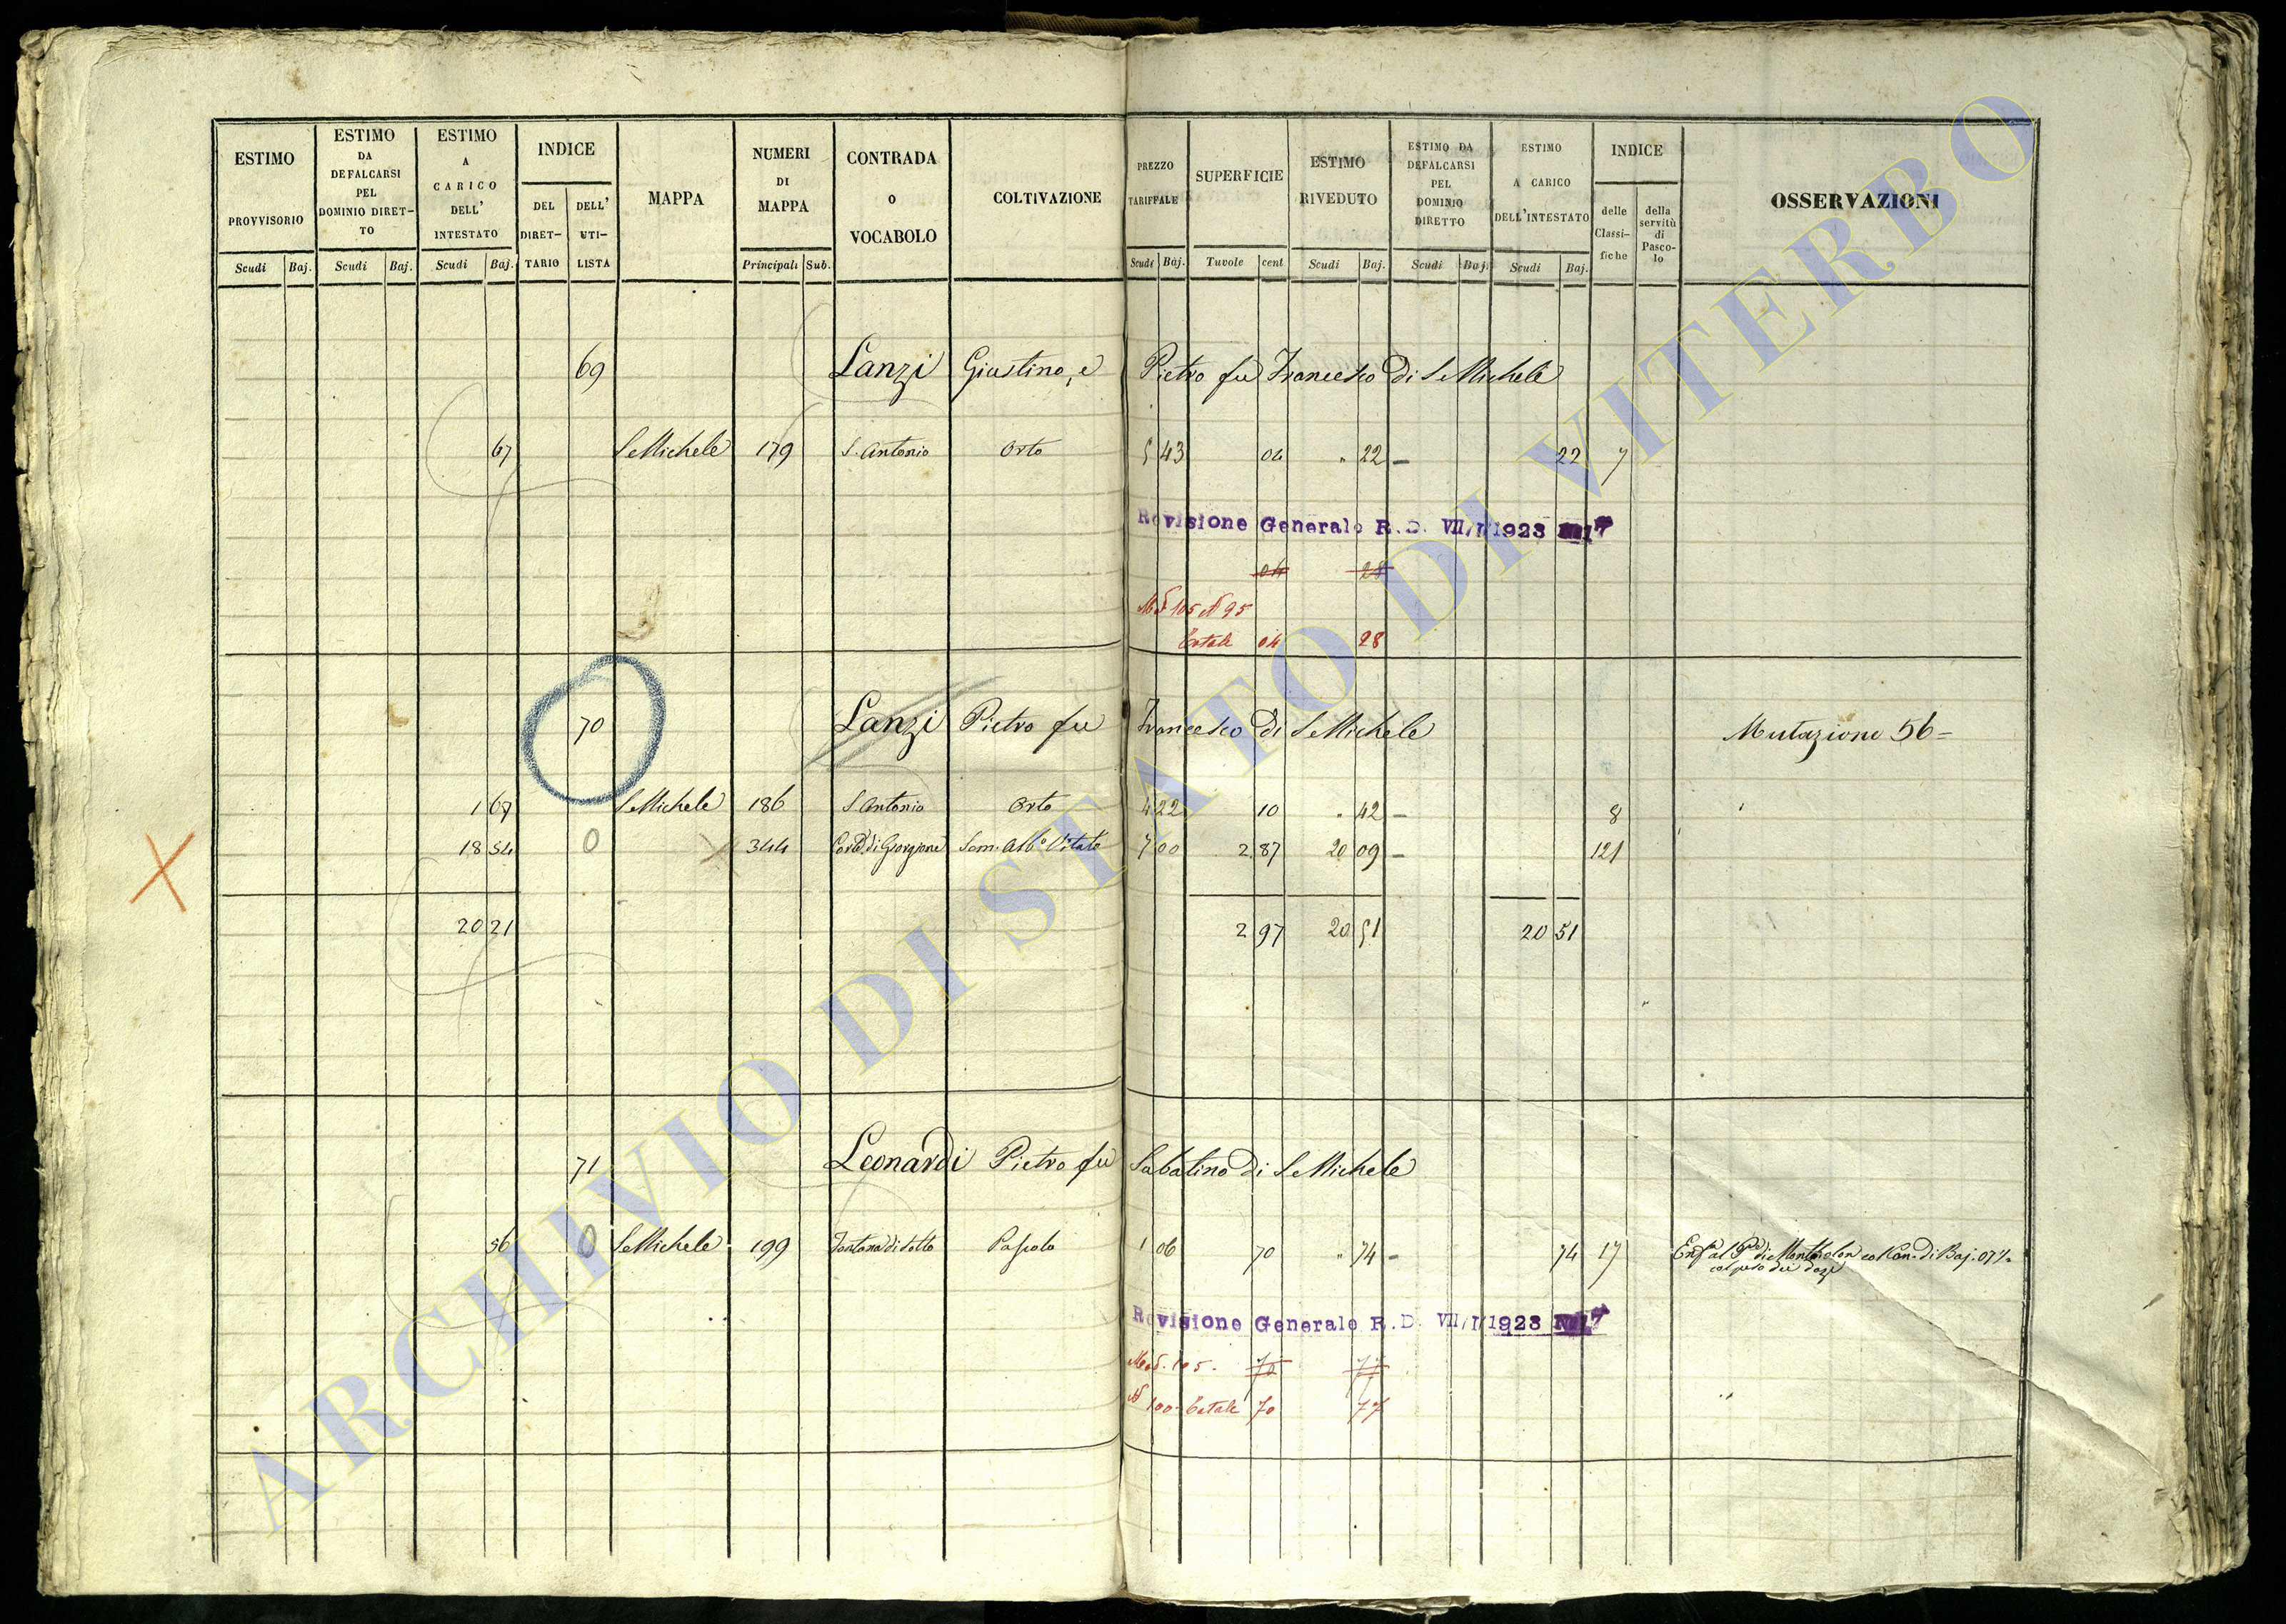 ESTIMO PROVVISORIO Scudi Baj.
ESTIMO DA DEFALCARSI PEL DOMINIO DIRET-TO Scudi Baj.
ESTIMO A CARICO DELL' INTESTATO Scudi Baj.
INDICE DEL DIRET-TARIO DELL' UTI-LISTA
MAPPA
NUMERI DI MAPPA Principali Sub.
CONTRADA O VOCABOLO
COLTIVAZIONE
PREZZO TARIFFALE Scudi Baj.
SUPERFICIE Tavole cent
ESTIMO RIVEDUTO Scudi Baj.
ESTIMO DA DEFALCARSI PEL DOMINIO DIRETTO Scudi Baj.
ESTIMO A CARICO DELL'INTESTATO Scudi Baj.
INDICE delle Classi-fiche della servitù di Pasco-lo
OSSERVAZIONI
69 Lanzi Giustino, e Pietro fu Francesco di S Michele
67 S Michele 179 S. Antonio Orto 5 43 04 " 22 - 22 7
Revisione Generale R.D. VII/I/1923 N 17
04 28
Mod 105 N 95
Totale 04 28
70 Lanzi Pietro fu Francesco di S Michele Mutazione 56=
1 67 S Michele 186 S Antonio Orto 4 22 10 " 42 - 8
18 54 0 344 Cord. di Giorgione Sem. Alb.o Vitato 7 00 2 87 20 09 - 121
20 21 2 97 20 51 20 51
71 Leonardi Pietro fu Sabatino di S Michele
56 0 S Michele 199 Fontana di Sotto Pascolo 1 06 70 " 74 - 74 17 al di col Can. di Baj. 07
col peso dei dazi
Revisione Generale R.D. VII/I/1923 N 17
Mod. 105. 70 77
N 100 Totale 70 77
ARCHIVIO DI STATO DI VITERBO